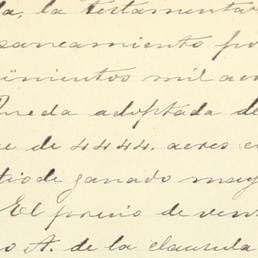 da, la testamentar
saneamiento por
inientos mil acr
queda adoptada de
e de 4444. acres c
tio de ganado may
El precio de ven
o A. de la clausula